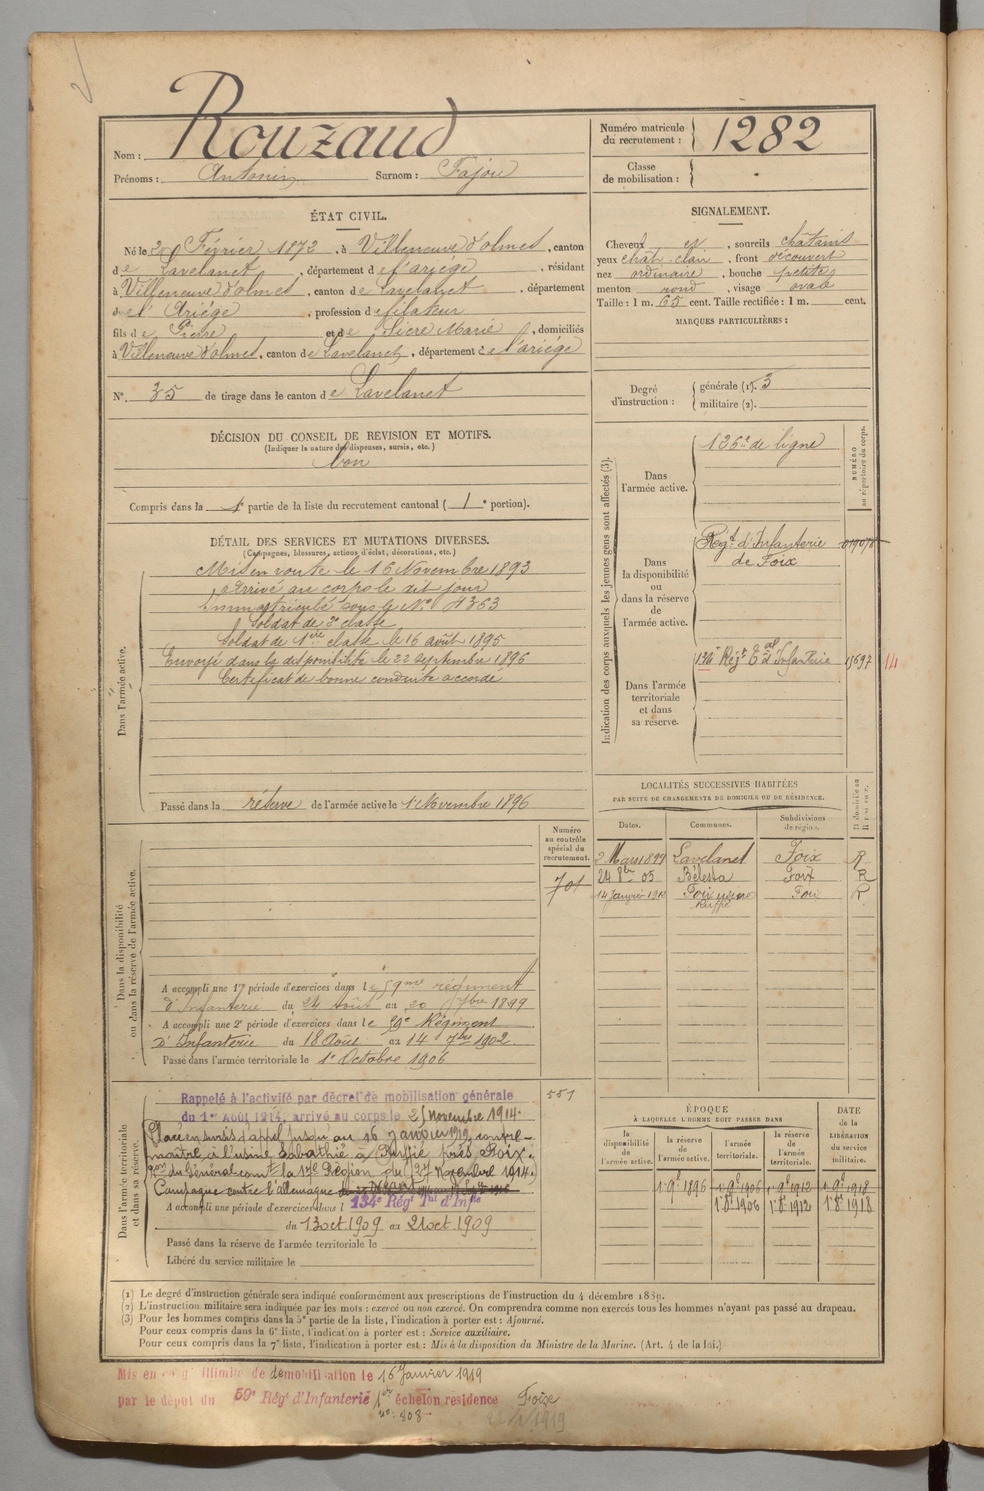 Nom : Rouzaud
Prénoms : Antonin Surnom : Fajou
Numéro matricule du recrutement : 1282
Classe de mobilisation :
ÉTAT CIVIL.
Né le Février 1872, à Villeneuve d'olmes, canton
de Lavelanet, département de l'ariége, résidant
à Villeneuve d'olmes, canton de Lavelanet, département
de l'Ariége, profession de filateur
fils de Pierre et de Sicre Marie, domiciliés
à Villeneuve d'olmes, canton de Lavelanet, département de l'ariége
N°. 35 de tirage dans le canton de Lavelanet
DÉCISION DU CONSEIL DE REVISION ET MOTIFS.
(Indiquer la nature des dispenses, sursis, etc.)
bon
Compris dans la 1e partie de la liste du recrutement cantonal (1e portion).
SIGNALEMENT.
Cheveux et, sourcils châtains
yeux chât. clair, front découvert
nez ordinaire, bouche petite
menton rond, visage ovale
Taille : 1 m. 65 cent. Taille rectifiée : 1 m. cent.
MARQUES PARTICULIÈRES :
Degré d'instruction :
générale (1). 3
militaire (2).
DÉTAIL DES SERVICES ET MUTATIONS DIVERSES.
(Campagnes, blessures, actions d'éclat, décorations, etc.)
Dans l'armée active.
Mis en route le 16 Novembre 1893
Arrivé au corps le dit jour
Immatriculé sous le N° 4363
Soldat de 2e classe
Soldat de 1ère classe le 16 août 1895
Envoyé dans la disponibilité le 22 septembre 1896
Certificat de bonne conduite accordé
Passé dans la réserve de l'armée active le 1 Novembre 1896
Indication des corps auxquels les jeunes gens sont affectés (3).
NUMÉRO au répertoire du corps.
Dans l'armée active.
126e de ligne
Dans la disponibilité ou dans la réserve de l'armée active.
Régt d'Infanterie
de Foix
Dans l'armée territoriale et dans sa réserve.
134e Régt Tal d'Infanterie 15697 14
LOCALITÉS SUCCESSIVES HABITÉES
PAR SUITE DE CHANGEMENTS DE DOMICILE OU DE RÉSIDENCE.
Dates. Communes. Subdivisions de région.
2 Mars 1899 Lavelanet Foix R
24 8bre 05 Bélesta Foix R
14 Janvier 1912 Foix Foix R
Dans la disponibilité ou dans la réserve de l'armée active.
Numéro au contrôle spécial du recrutement.
701
A accompli une 1re période d'exercices dans le 59me régiment
d'Infanterie du 24 Août au 20 7bre 1899
A accompli une 2e période d'exercices dans le 59e Régiment
D'Infanterie du 18 Août au 14 7bre 1902
Passé dans l'armée territoriale le 1er Octobre 1906
Dans l'armée territoriale et dans sa réserve.
551
Rappelé à l'activité par décret de mobilisation générale
du 1er Août 1914, arrivé au corps le 25 novembre 1914.
Placé en sursis d'appel jusqu'au 16 janvier 1919, contre-
maître à l'usine Sabathié à près Foix.
Don du Général comt la 17e Région du 27 Novembre 1914.
Campagne contre l'allemagne
A accompli une période d'exercices dans l 134e Régt Tal d'Infie
du 13 oct 1909 au 21 oct 1909
Passé dans la réserve de l'armée territoriale le
Libéré du service militaire le
ÉPOQUE
À LAQUELLE L'HOMME DOIT PASSER DANS
la disponibilité de l'armée active. la réserve de l'armée active. l'armée territoriale. la réserve de l'armée territoriale.
DATE de la LIBÉRATION du service militaire.
1 9e 1896 1 9e 1906 1 9e 1912 1 9e 1918
1 8e 1906 1 8e 1912 1 8e 1918
(1) Le degré d'instruction générale sera indiqué conformément aux prescriptions de l'instruction du 4 décembre 1889.
(2) L'instruction militaire sera indiquée par les mots : exercé ou non exercé. On comprendra comme non exercés tous les hommes n'ayant pas passé au drapeau.
(3) Pour les hommes compris dans la 5e partie de la liste, l'indication à porter est : Ajourné.
Pour ceux compris dans la 6e liste, l'indication à porter est : Service auxiliaire.
Pour ceux compris dans la 7e liste, l'indication à porter est : Mis à la disposition du Ministre de la Marine. (Art. 4 de la loi.)
Mis en congé illimité de démobilisation le 16 Janvier 1919
par le dépôt du 59e Régt d'Infanterie 1er échelon residence Foix
no. 808